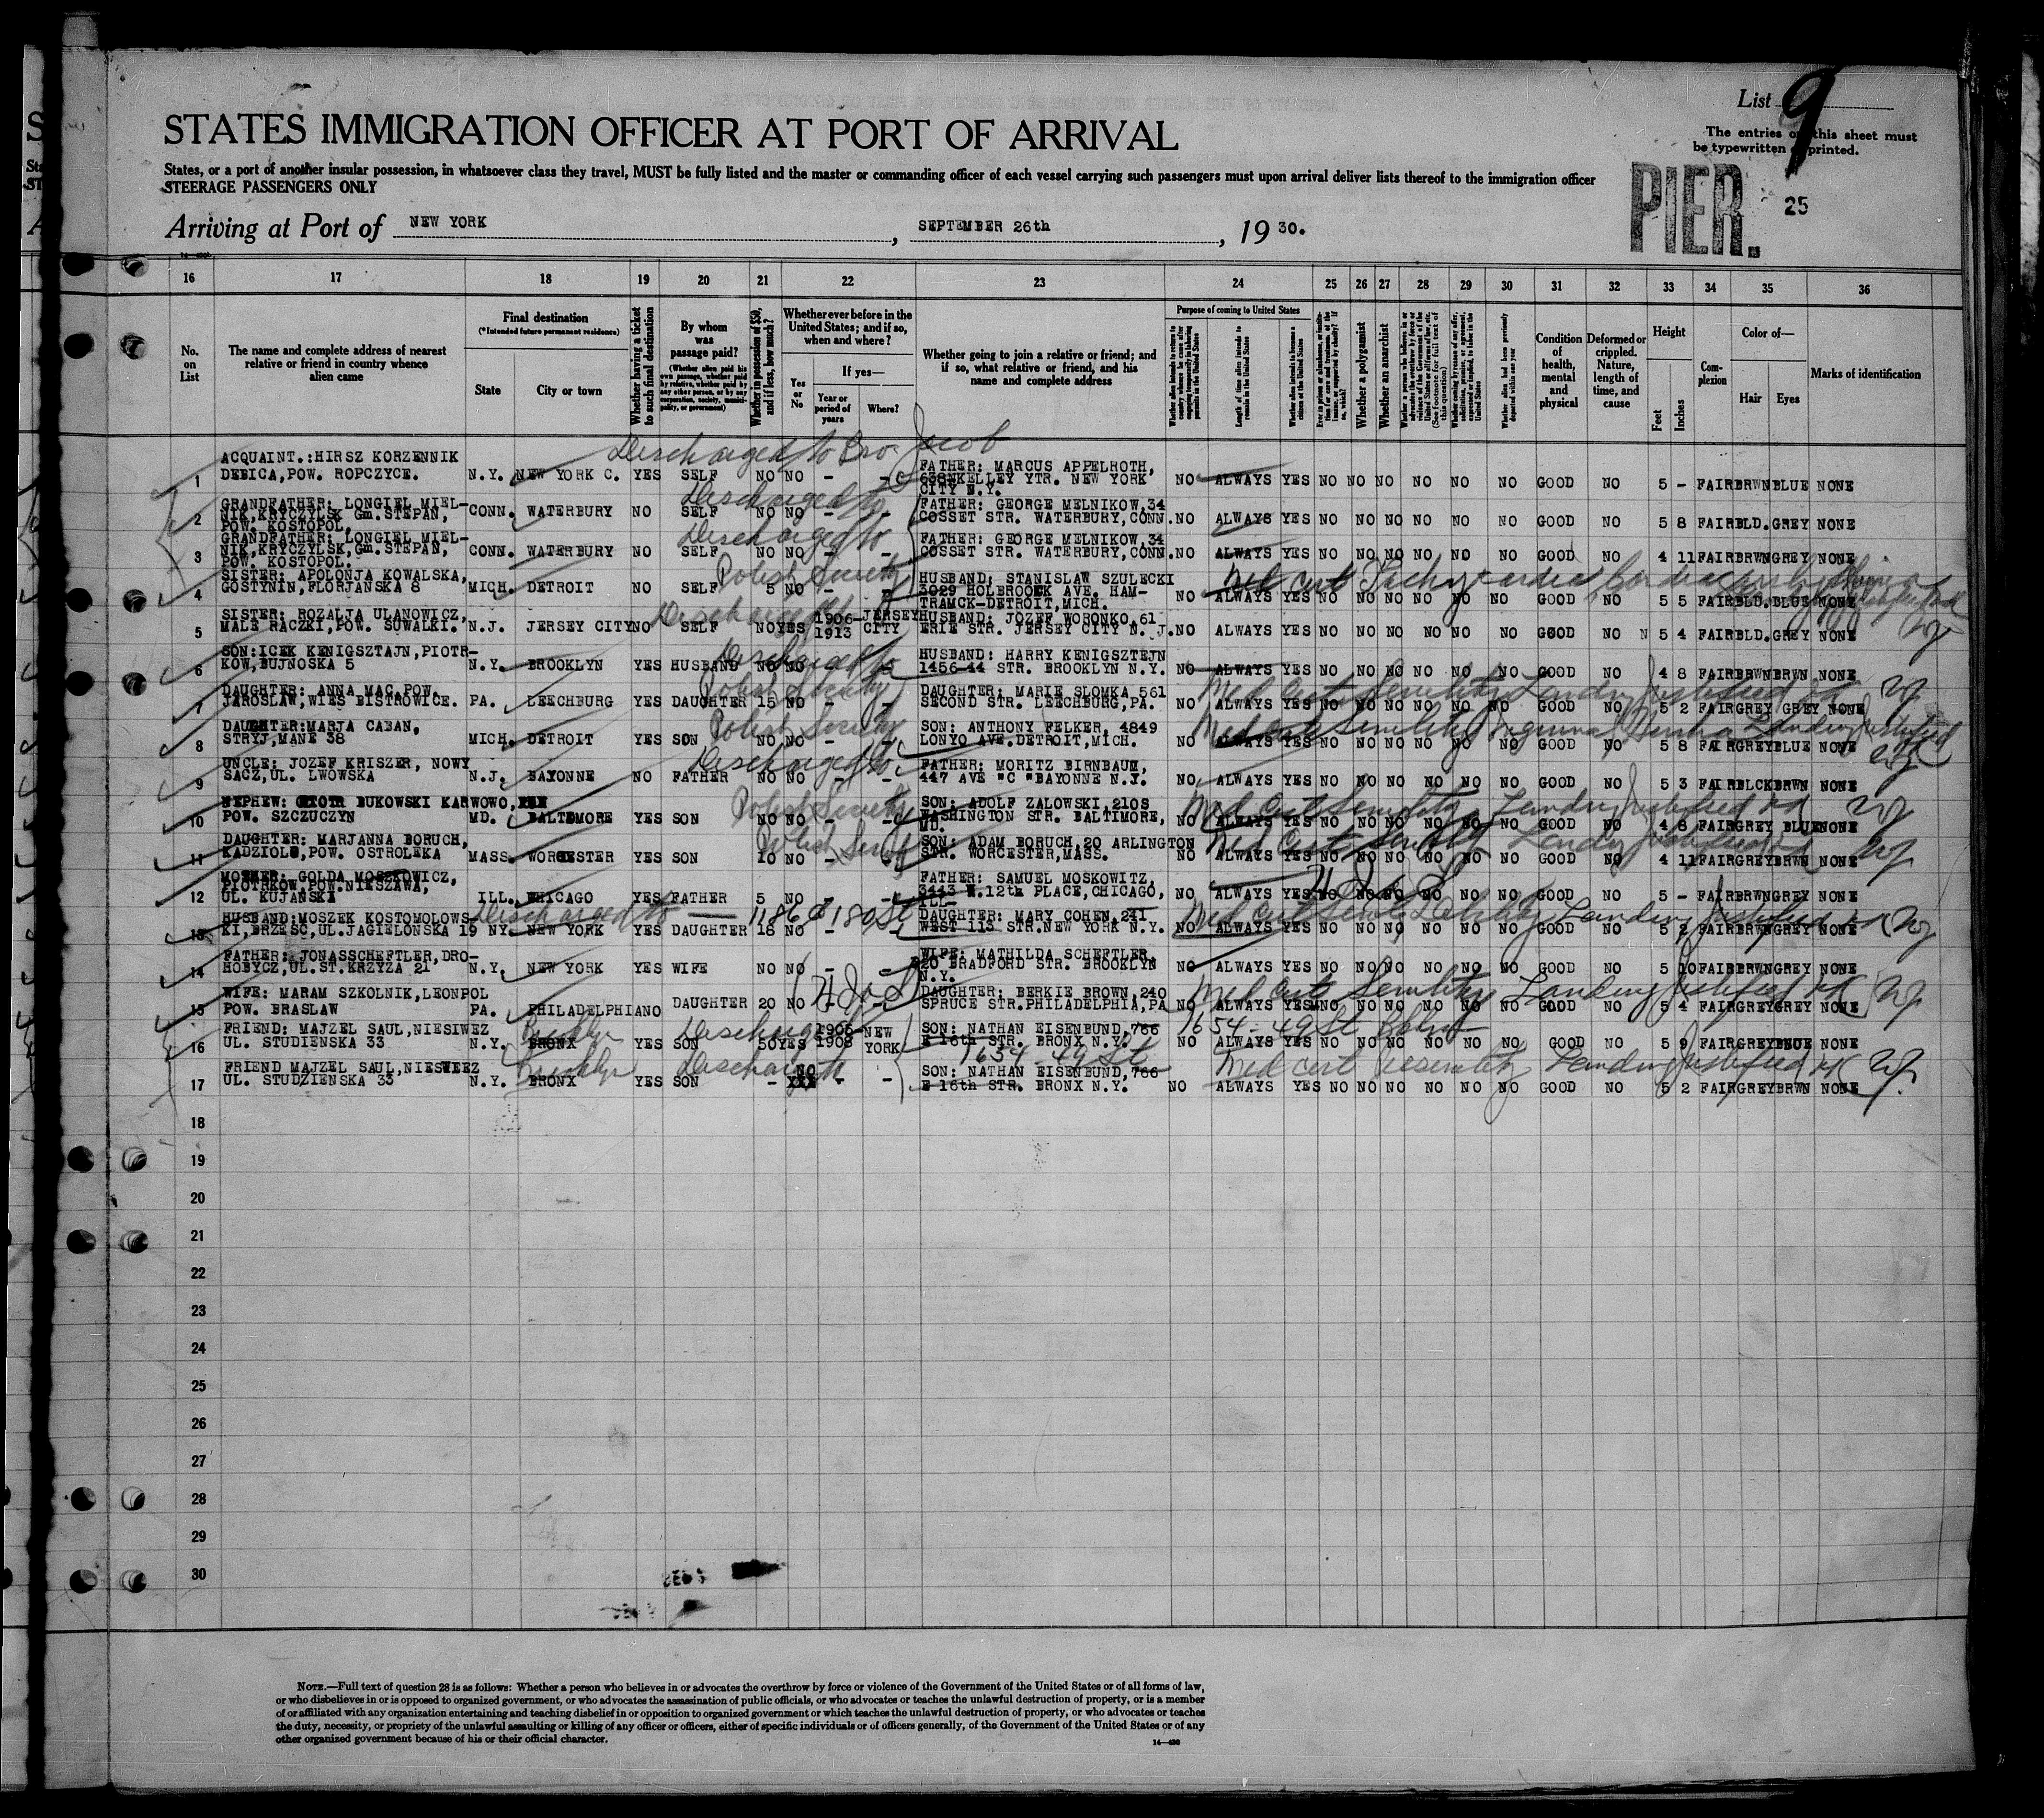 List 9
The entries on this sheet must
be typewritten or printed.
STATES IMMIGRATION OFFICER AT PORT OF ARRIVAL
States, or a port of another insular possession, in whatsoever class they travel, MUST be fully listed and the master or commanding officer of each vessel carrying such passengers must upon arrival deliver lists thereof to the immigration officer
STEERAGE PASSENGERS ONLY
PIER. 25
Arriving at Port of NEW YORK, SEPTEMBER 26th, 19 30.
16 17 18 19 20 21 22 23 24 25 26 27 28 29 30 31 32 33 34 35 36
No. on List
The name and complete address of nearest relative or friend in country whence alien came
Final destination
(*Intended future permanent residence)
State
City or town
Whether having a ticket to such final destination
By whom was passage paid?
(Whether alien paid his own passage, whether paid by relative, whether paid by any other person, or by any corporation, society, municipality, or government)
Whether in possession of $50, and if less, how much?
Whether ever before in the United States; and if so, when and where?
Yes or No
If yes—
Year or period of years
Where?
Whether going to join a relative or friend; and if so, what relative or friend, and his name and complete address
Purpose of coming to United States
Length of time alien intends to remain in the United States
Whether alien intends to become a citizen of the United States
Whether a polygamist
Whether an anarchist
Condition of health, mental and physical
Deformed or crippled. Nature, length of time, and cause
Height
Feet
Inches
Complexion
Color of—
Hair
Eyes
Marks of identification
Discharged to Bro Jacob
1 ACQUAINT.:HIRSZ KORZENNIK
DEBICA,POW. ROPCZYCE. N.Y. NEW YORK C. YES SELF NO NO - - FATHER: MARCUS APPELROTH,
638 KELLEY YTR. NEW YORK
CITY N.Y. NO ALWAYS YES NO NO NO NO NO NO GOOD NO 5 - FAIR BRWN BLUE NONE
Discharged to
2 GRANDFATHER: LONGIEL MIEL-
NIK,KRYCZYLSK Gm.STEPAN,
POW. KOSTOPOL. CONN. WATERBURY NO SELF NO NO - - FATHER: GEORGE MELNIKOW,34
COSSET STR. WATERBURY,CONN. NO ALWAYS YES NO NO NO NO NO NO GOOD NO 5 8 FAIR BLD. GREY NONE
Discharged to
3 GRANDFATHER: LONGIEL MIEL-
NIK,KRYCZYLSK,Gm.STEPAN,
POW. KOSTOPOL. CONN. WATERBURY NO SELF NO NO - - FATHER: GEORGE MELNIKOW,34
COSSET STR. WATERBURY,CONN. NO ALWAYS YES NO NO NO NO NO NO GOOD NO 4 11 FAIR BRWN GREY NONE
Polish Society
Med cert Tachycardia
4 SISTER: APOLONJA KOWALSKA,
GOSTYNIN,FLORJANSKA 8 MICH. DETROIT NO SELF 5 NO - - HUSBAND: STANISLAW SZULECKI
3029 HOLBROOCK AVE. HAM-
TRAMCK-DETROIT,MICH. NO ALWAYS YES NO NO NO NO NO NO GOOD NO 5 5 FAIR BLD. BLUE NONE
Discharged to
5 SISTER: ROZALJA ULANOWICZ,
MALE RACZKI,POW. SUWALKI. N.J. JERSEY CITY NO SELF NO YES 1906-
1913 JERSEY
CITY HUSBAND: JOZEF WORONKO,61
ERIE STR. JERSEY CITY N.J. NO ALWAYS YES NO NO NO NO NO NO GOOD NO 5 4 FAIR BLD. GREY NONE
Discharged to
6 SON:ICEK KENIGSZTAJN,PIOTR-
KOW,BUJNOSKA 5 N.Y. BROOKLYN YES HUSBAND NO NO - - HUSBAND: HARRY KENIGSZTEJN
1456-44 STR. BROOKLYN N.Y. NO ALWAYS YES NO NO NO NO NO NO GOOD NO 4 8 FAIR BRWN BRWN NONE
Polish Society
Med Cert Senility Landing Justified
7 DAUGHTER: ANNA MAC,POW.
JAROSLAW,WIES BISTROWICE. PA. LEECHBURG YES DAUGHTER 15 NO - - DAUGHTER: MARIE SLOMKA 561
SECOND STR. LEECHBURG,PA. NO ALWAYS YES NO NO NO NO NO NO GOOD NO 5 2 FAIR GREY GREY NONE
Polish Society
Med cert Senility Inguinal Hernia Landing Justified
8 DAUGHTER:MARJA CABAN,
STRYJ,MANE 38 MICH. DETROIT YES SON NO NO - - SON: ANTHONY FELKER, 4849
LONYO AVE.DETROIT,MICH. NO ALWAYS YES NO NO NO NO NO NO GOOD NO 5 8 FAIR GREY BLUE NONE
Discharged to
9 UNCLE: JOZEF KRISZER, NOWY
SACZ,UL. LWOWSKA N.J. BAYONNE NO FATHER NO NO - - FATHER: MORITZ BIRNBAUM,
447 AVE "C "BAYONNE N.J. NO ALWAYS YES NO NO NO NO NO NO GOOD NO 5 3 FAIR BLCK BRWN NONE
Polish Society
Med Cert Senility Landing Justified
10 NEPHEW: PIOTR BUKOWSKI KARWOWO,
POW. SZCZUCZYN MD. BALTIMORE YES SON NO NO - - SON: ADOLF ZALOWSKI,210S
WASHINGTON STR. BALTIMORE,
MD. NO ALWAYS YES NO NO NO NO NO NO GOOD NO 4 8 FAIR GREY BLUE NONE
Polish Society
Med Cert Senility Landing Justified
11 DAUGHTER: MARJANNA BORUCH,
KADZIOLE,POW. OSTROLEKA MASS. WORCESTER YES SON 10 NO - - SON: ADAM BORUCH,20 ARLINGTON
STR. WORCESTER,MASS. NO ALWAYS YES NO NO NO NO NO NO GOOD NO 4 11 FAIR GREY BRWN NONE
12 MOTHER: GOLDA MOSZKOWICZ,
PIOTRKOW,POW.NIESZAWA,
UL. KUJANSKI ILL. CHICAGO YES FATHER 5 NO - - FATHER: SAMUEL MOSKOWITZ,
3443 W.12th PLACE,CHICAGO,
ILL- NO ALWAYS YES NO NO NO NO NO NO GOOD NO 5 - FAIR BRWN GREY NONE
Discharged to 1186 E 180 St
Med Cert Senile Debility Landing Justified
13 HUSBAND:MOSZEK KOSTOMOLOWS-
KI,BRZESC,UL.JAGIELONSKA 19 NY. NEW YORK YES DAUGHTER 18 NO - - DAUGHTER: MARY COHEN,241
WEST 113 STR.NEW YORK N.Y. NO ALWAYS YES NO NO NO NO NO NO GOOD NO 5 2 FAIR BRWN GREY NONE
14 FATHER: JONASSCHEFTLER,DRO-
HOBYCZ,UL.ST.KRZYZA 21 N.Y. NEW YORK YES WIFE NO NO - - WIFE: MATHILDA SCHEFTLER,
20 BRADFORD STR. BROOKLYN
N.Y. NO ALWAYS YES NO NO NO NO NO NO GOOD NO 5 10 FAIR BRWN GREY NONE
Med Cert Senility Landing Justified
15 WIFE: MARAM SZKOLNIK,LEONPOL
POW. BRASLAW PA. PHILADELPHIA NO DAUGHTER 20 NO - - DAUGHTER: BERKIE BROWN,240
SPRUCE STR.PHILADELPHIA,PA NO ALWAYS YES NO NO NO NO NO NO GOOD NO 5 4 FAIR GREY GREY NONE
Brooklyn Discharged to 1654 - 49 St Bklyn
16 FRIEND: MAJZEL SAUL,NIESIWEZ
UL. STUDIENSKA 33 N.Y. BRONX YES SON 50 YES 1906-
1908 NEW
YORK SON: NATHAN EISENBUND,766
E 16th STR. BRONX N.Y. NO ALWAYS YES NO NO NO NO NO NO GOOD NO 5 9 FAIR GREY BLUE NONE
Brooklyn Discharged to 1654 49 St Med cert Senility Landing Justified
17 FRIEND MAJZEL SAUL,NIESWIEZ
UL. STUDZIENSKA 33 N.Y. BRONX YES SON - NO XXX - - SON: NATHAN EISENBUND,766
E 16th STR. BRONX N.Y. NO ALWAYS YES NO NO NO NO NO NO GOOD NO 5 2 FAIR GREY BRWN NONE
18
19
20
21
22
23
24
25
26
27
28
29
30
NOTE.—Full text of question 28 is as follows: Whether a person who believes in or advocates the overthrow by force or violence of the Government of the United States or of all forms of law,
or who disbelieves in or is opposed to organized government, or who advocates the assassination of public officials, or who advocates or teaches the unlawful destruction of property, or is a member
of or affiliated with any organization entertaining and teaching disbelief in or opposition to organized government or which teaches the unlawful destruction of property, or who advocates or teaches
the duty, necessity, or propriety of the unlawful assaulting or killing of any officer or officers, either of specific individuals or of officers generally, of the Government of the United States or of any
other organized government because of his or their official character.
14—430